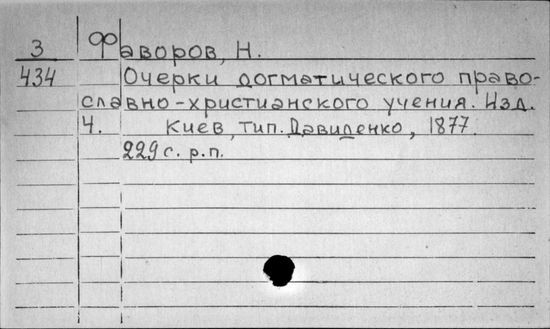 З Фаворов, Н.
434 Очерки догматического право-
славно-христианского учения. Изд.
4. Киев, тип. Давиденко, 1877.
229 с. р.п.